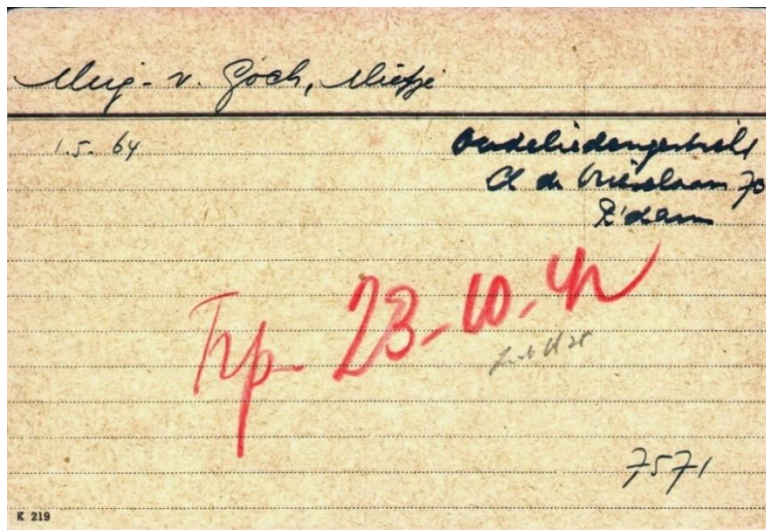 v. Goch, Mietje
1.5.64
Oudeliedengesticht
Cl de Vrieselaan 70
R'dam
Trp. 23-10-42
7571
K 219